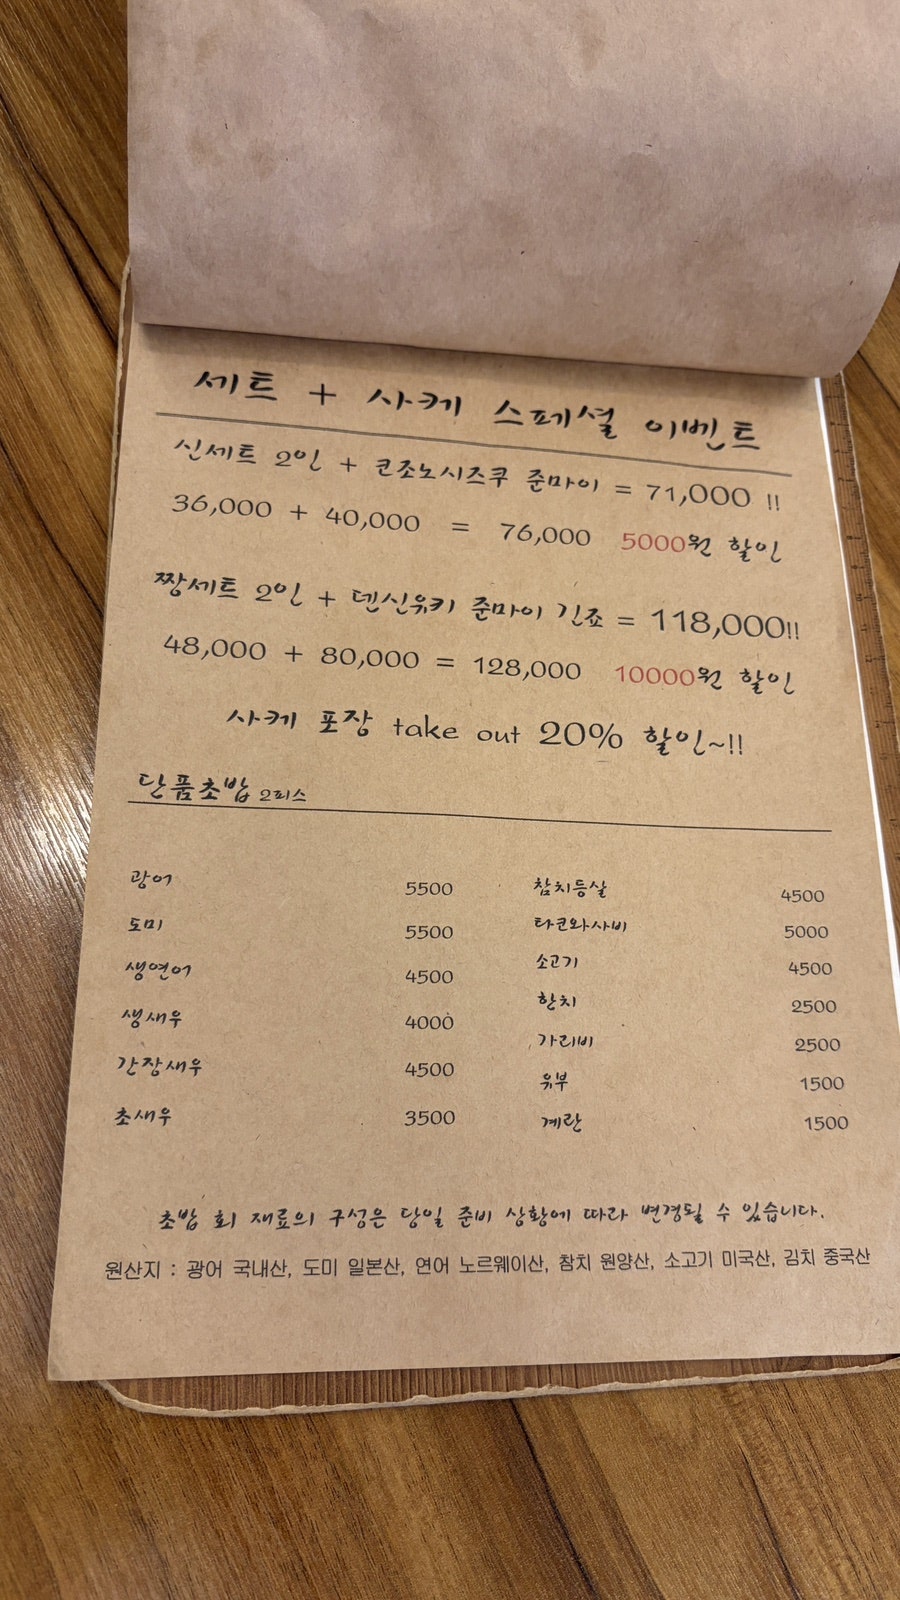 세트 + 사케 스페셜 이벤트
신세트 2인 + 코조노시즈쿠 준마이 = 71,000 !!
36,000 + 40,000 = 76,000 5000원 할인
짱세트 2인 + 덴신유키 준마이 긴죠 = 118,000!!
48,000 + 80,000 = 128,000 10000원 할인
사케 포장 take out 20% 할인~!!
단품초밥 2피스
광어 5500
도미 5500
생연어 4500
생새우 4000
간장새우 4500
초새우 3500
참치등살 4500
타코와사비 5000
소고기 4500
한치 2500
가리비 2500
유부 1500
계란 1500
초밥 회 재료의 구성은 당일 준비 상황에 따라 변경될 수 있습니다.
원산지 : 광어 국내산, 도미 일본산, 연어 노르웨이산, 참치 원양산, 소고기 미국산, 김치 중국산